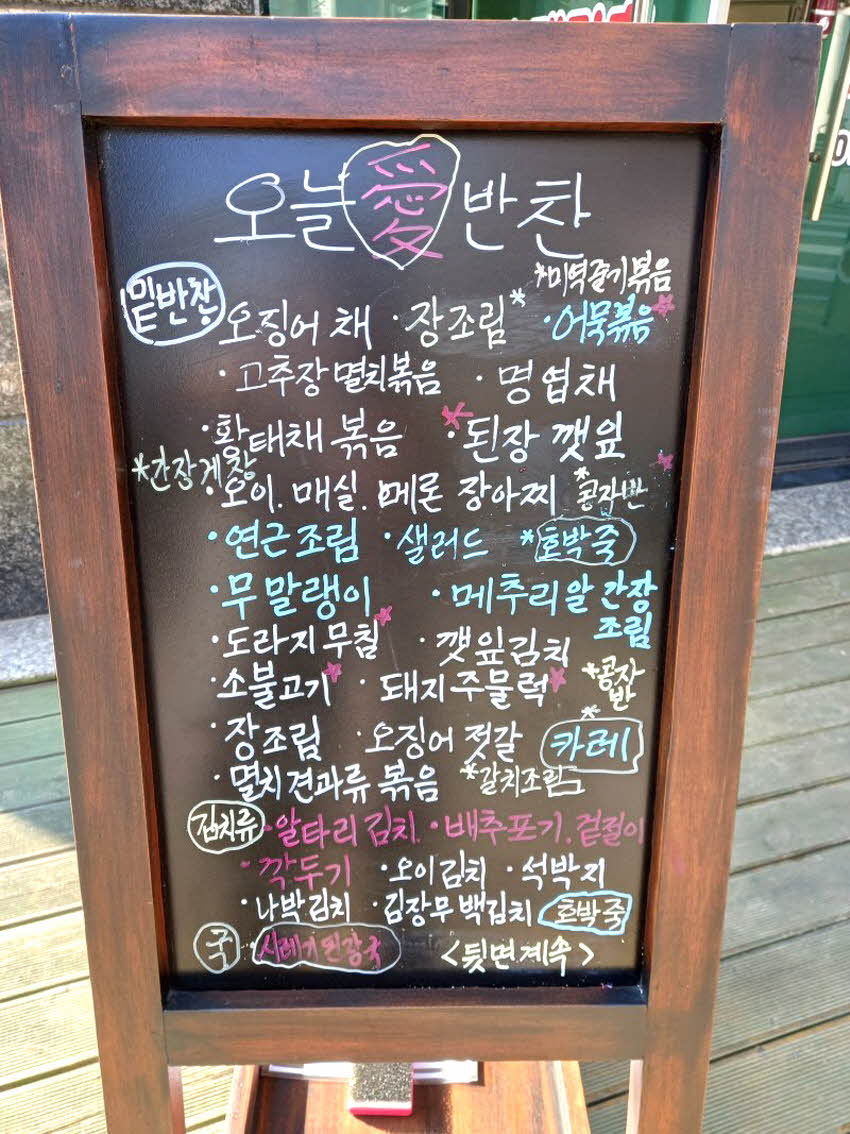 오늘 愛 반찬
*미역줄기볶음
밑반찬
오징어 채 · 장조림* · 어묵볶음
· 고추장 멸치볶음 · 명엽채
· 황태채 볶음 · 된장 깻잎
*간장게장
오이. 매실. 메론 장아찌 *콩자반
· 연근 조림 · 샐러드 *호박죽
· 무말랭이 · 메추리알 간장
조림
· 도라지 무침 · 깻잎김치
· 소불고기 · 돼지 주물럭 *콩자
반
· 장조림 · 오징어 젓갈 *카레
· 멸치 견과류 볶음 *갈치조림
김치류 · 알타리 김치. · 배추 포기. 겉절이
· 깍두기 · 오이 김치 · 석박지
· 나박김치 · 김장무 백김치 호박죽
국 시레기 된장국 <뒷면 계속>